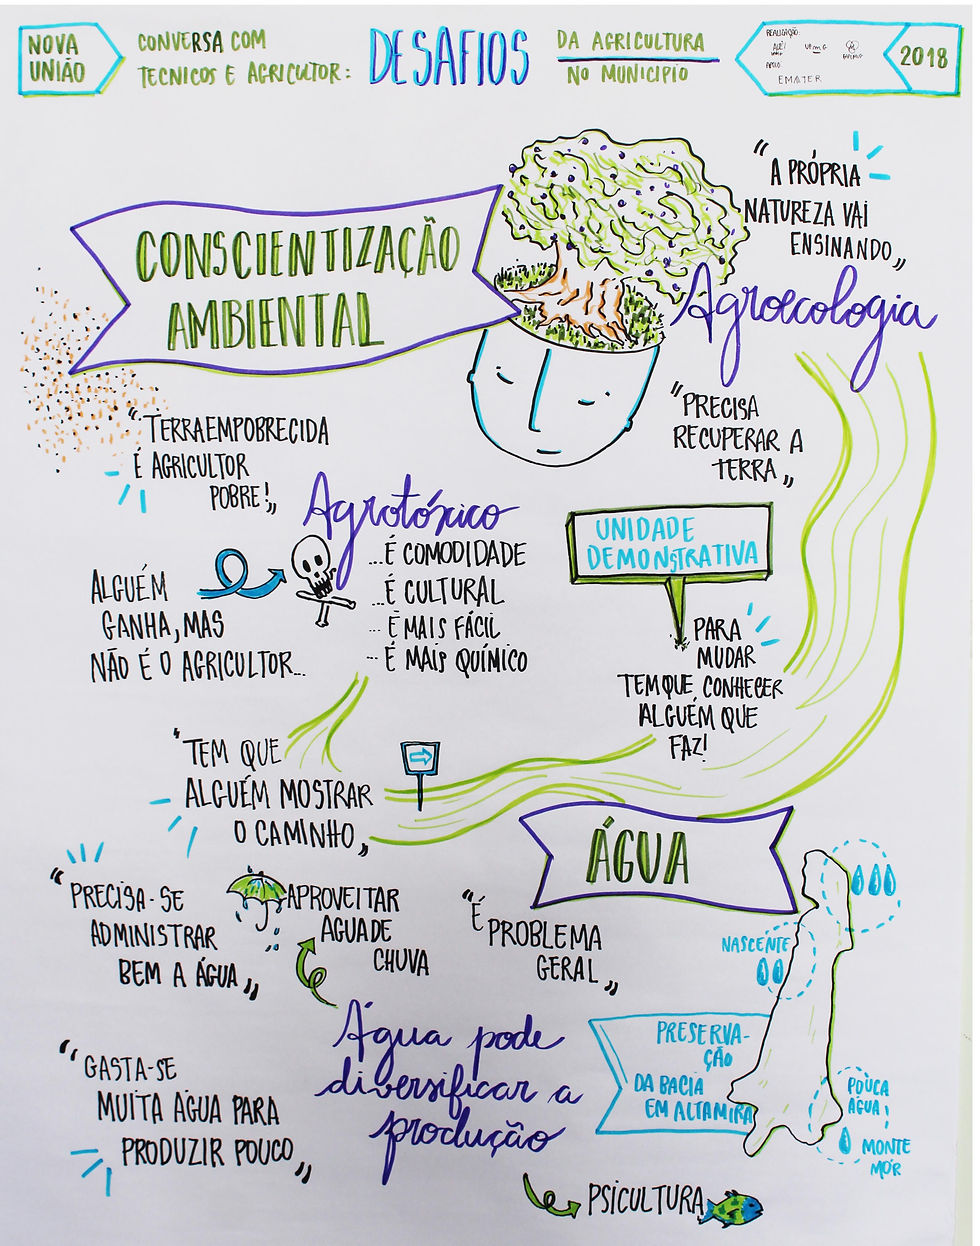 NOVA
UNIÃO
CONVERSA COM
TECNICOS E AGRICULTOR:
DESAFIOS
DA AGRICULTURA
NO MUNICIPIO
REALIZAÇÃO:
APOIO:
EMATER
2018
CONSCIENTIZAÇÃO
AMBIENTAL
"A PRÓPRIA
NATUREZA VAI
ENSINANDO"
Agroecologia
"TERRA EMPOBRECIDA
É AGRICULTOR
POBRE!"
"PRECISA
RECUPERAR A
TERRA"
Agrotóxico
...É COMODIDADE
...É CULTURAL
...É MAIS FÁCIL
...É MAIS QUÍMICO
ALGUÉM
GANHA, MAS
NÃO É O AGRICULTOR...
UNIDADE
DEMONSTRATIVA
PARA
MUDAR
TEM QUE CONHECER
ALGUÉM QUE
FAZ!
"TEM QUE
ALGUÉM MOSTRAR
O CAMINHO"
ÁGUA
"PRECISA-SE
ADMINISTRAR
BEM A ÁGUA"
APROVEITAR
AGUA DE
CHUVA
"É
PROBLEMA
GERAL"
NASCENTE
Água pode
diversificar a
produção
PRESERVA-
ÇÃO
DA BACIA
EM ALTAMIRA
POUCA
ÁGUA!
MONTE
MOR
"GASTA-SE
MUITA ÁGUA PARA
PRODUZIR POUCO"
PSICULTURA